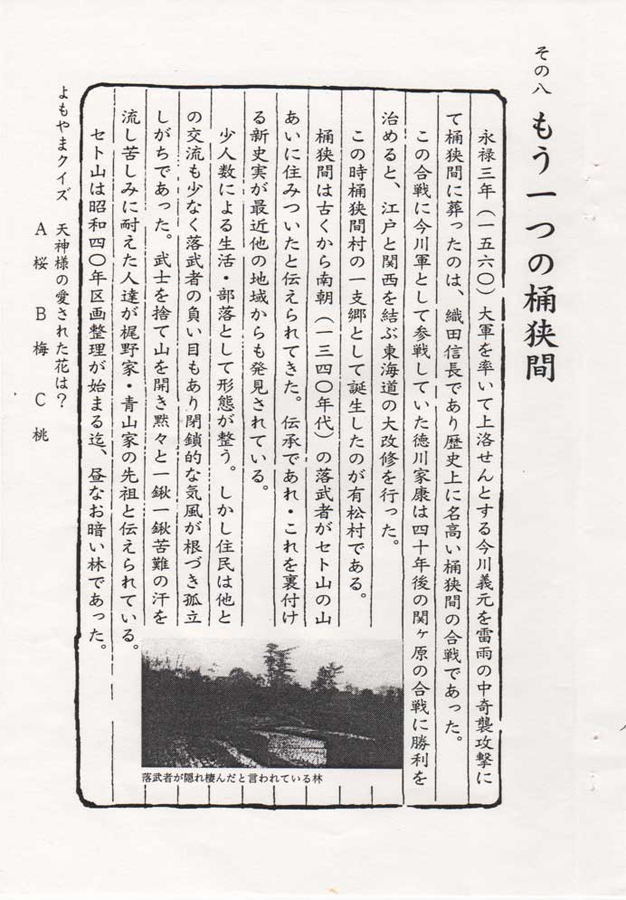 その八 もう一つの桶狭間
永禄三年（一五六〇）大軍を率いて上洛せんとする今川義元を雷雨の中奇襲攻撃に
て桶狭間に葬ったのは、織田信長であり歴史上に名高い桶狭間の合戦であった。
この合戦に今川軍として参戦していた徳川家康は四十年後の関ヶ原の合戦に勝利を
治めると、江戸と関西を結ぶ東海道の大改修を行った。
この時桶狭間村の一支郷として誕生したのが有松村である。
桶狭間は古くから南朝（一三四〇年代）の落武者がセト山の山
あいに住みついたと伝えられてきた。伝承であれ・これを裏付け
る新史実が最近他の地域からも発見されている。
少人数による生活・部落として形態が整う。しかし住民は他と
の交流も少なく落武者の負い目もあり閉鎖的な気風が根づき孤立
しがちであった。武士を捨て山を開き黙々と一鍬一鍬苦難の汗を
流し苦しみに耐えた人達が梶野家・青山家の先祖と伝えられている。
セト山は昭和四〇年区画整理が始まる迄、昼なお暗い林であった。
落武者が隠れ棲んだと言われている林
よもやまクイズ 天神様の愛された花は？
A 桜 B 梅 C 桃